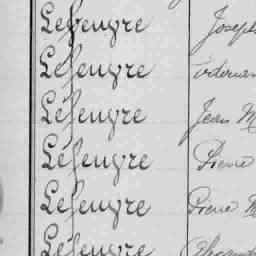 Lefeuvre Joseph
Lefeuvre
Lefeuvre Jean M
Lefeuvre Pierre
Lefeuvre Pierre M
Lefeuvre